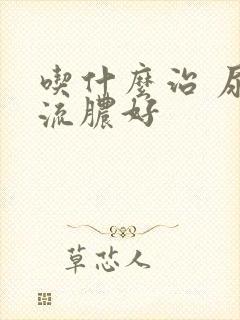 喫什麼治
流膿好
草芯人